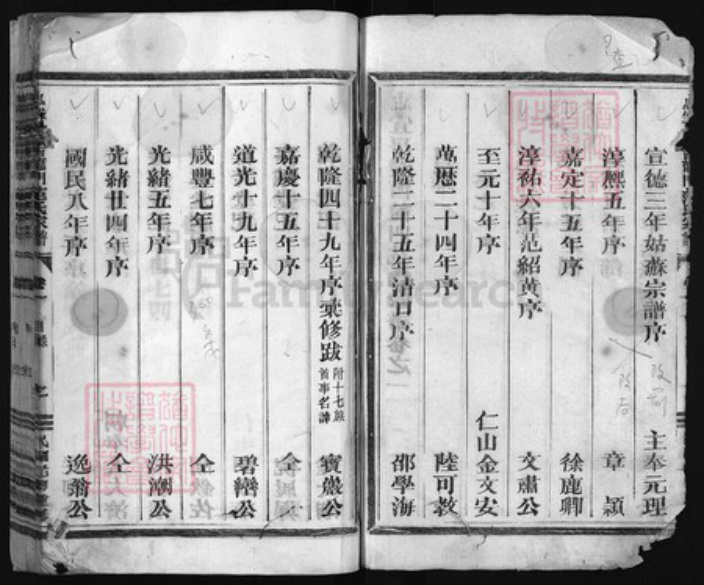 宣德三年姑蘇宗譜序 主奉元理
淳熙五年序 章潁
嘉定十五年序 徐鹿卿
淳祐六年范紹黄序 文肅公
至元十年序 仁山金文安
萬曆二十四年序 陸可教
乾隆二十五年清口序 邵學海
乾隆四十九年序並修跋 附十七派首事名諱 寶巖公
嘉慶十五年序 仝
道光十九年序 碧巒公
咸豐七年序 仝
光緒五年序 洪潮公
光緒廿四年序 仝
國民八年序 逸翁公
FamilySearch